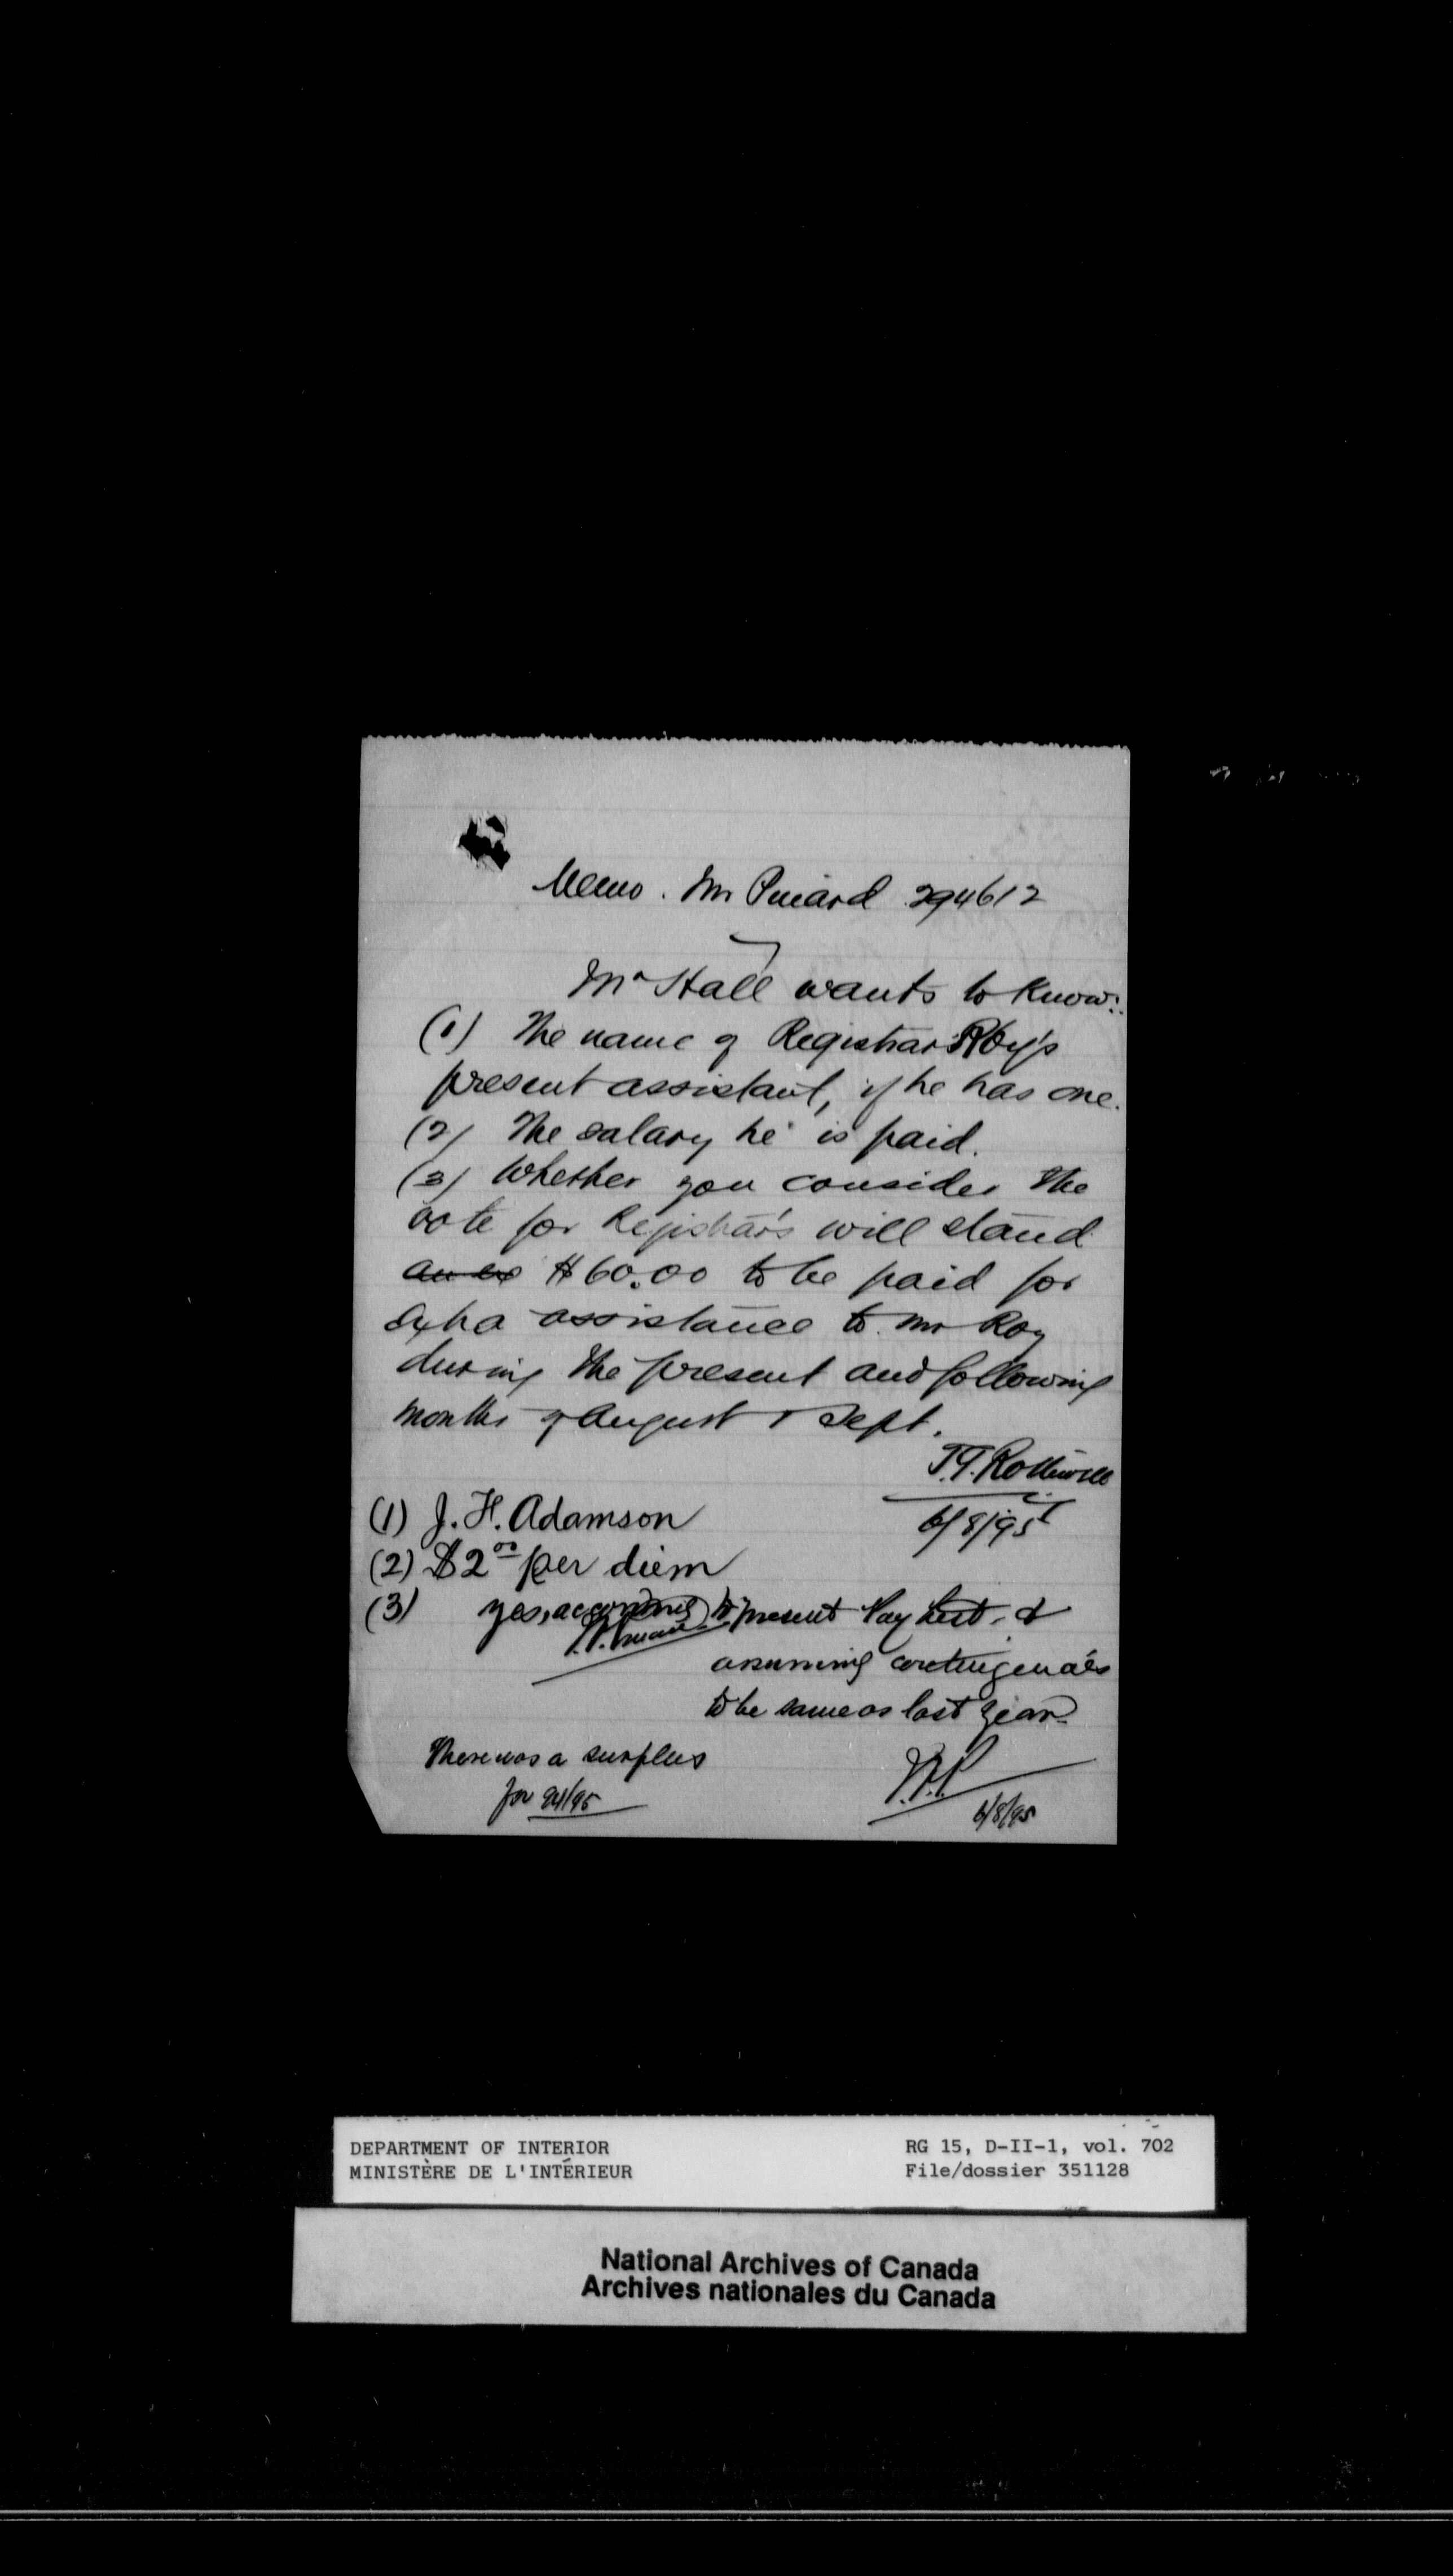 Memo. Mr Pinard 294612
Mr Hall wants to know:
(1) The name of Registrar Roy's
present assistant, if he has one.
(2) The salary he is paid.
(3) Whether you consider the
vote for Registrars will stand
$60.00 to be paid for
extra assistance to Mr Roy
during the present and following
months of August & Sept.
T.G. Rothwell
6/8/95
(1) J. H. Adamson
(2) $2 00 per diem
(3) yes, according to present Pay List, &
assuming contingencies
to be same as last year.
There was a surplus
for 94/95
6/8/95
DEPARTMENT OF INTERIOR
MINISTÈRE DE L'INTÉRIEUR
RG 15, D-II-1, vol. 702
File/dossier 351128
National Archives of Canada
Archives nationales du Canada